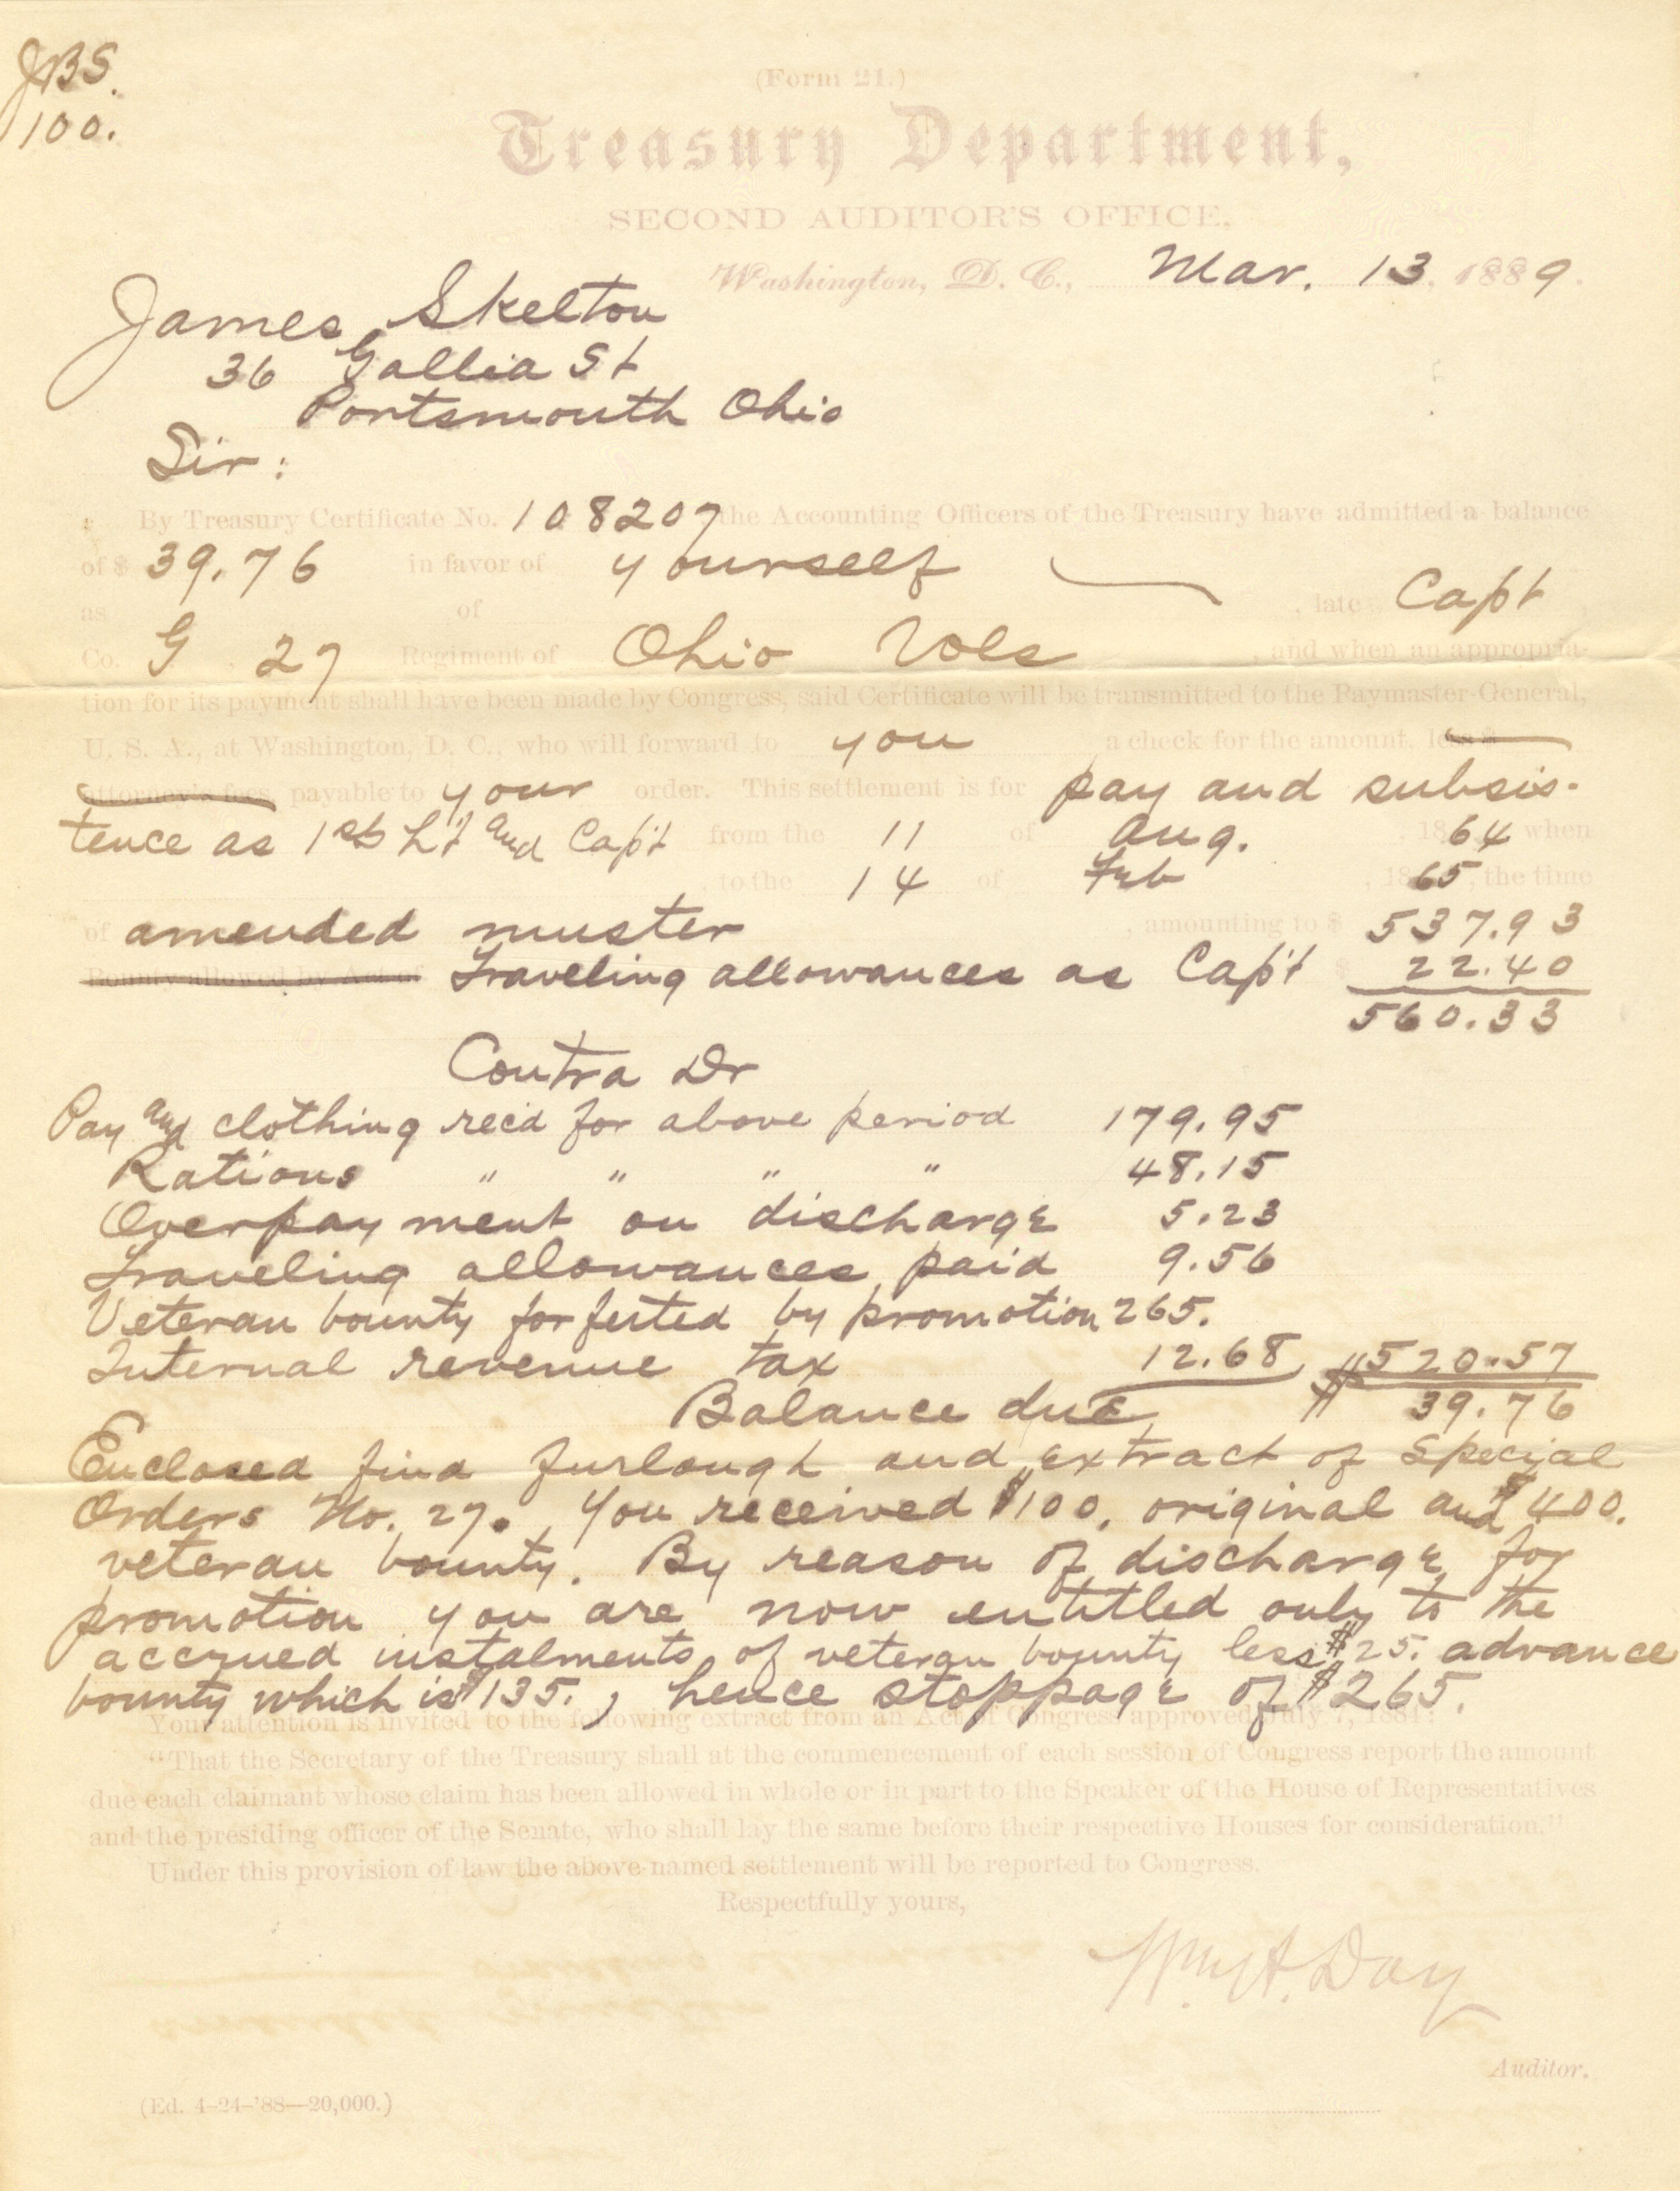 JBS.
100.
(Form 21.)
Treasury Department,
SECOND AUDITOR'S OFFICE,
Washington, D. C., Mar. 13, 1889.
James Skelton
36 Gallia St
Portsmouth Ohio
Sir:
By Treasury Certificate No. 108207 the Accounting Officers of the Treasury have admitted a balance
of $ 39.76 in favor of yourself
as of , late Capt ,
Co. G , 27 Regiment of Ohio Vols , and when an appropria-
tion for its payment shall have been made by Congress, said Certificate will be transmitted to the Paymaster-General,
U. S. A., at Washington, D. C., who will forward to you a check for the amount, less $
attorney's fees, payable to your order. This settlement is for pay and subsis-
tence as 1st Lt and Capt from the 11 of Aug. , 1864 when
, to the 14 of Feb , 1865, the time
of amended muster , amounting to $ 537.93
Bounty allowed by Act of Traveling allowances as Capt $ 22.40
560.33
Contra Dr
Pay and clothing rec'd for above period 179.95
Rations " " " " 48.15
Overpayment on discharge 5.23
Traveling allowances paid 9.56
Veteran bounty forfeited by promotion 265.
Internal revenue tax 12.68 $520.57
Balance due $ 39.76
Enclosed find furlough and extract of Special
Orders No. 27. You received $100. original and $400.
veteran bounty. By reason of discharge for
promotion you are now entitled only to the
accrued instalments of veteran bounty less $25. advance
bounty which is $135., hence stoppage of $265.
Your attention is invited to the following extract from an Act of Congress approved July 7, 1884:
"That the Secretary of the Treasury shall at the commencement of each session of Congress report the amount
due each claimant whose claim has been allowed in whole or in part to the Speaker of the House of Representatives
and the presiding officer of the Senate, who shall lay the same before their respective Houses for consideration."
Under this provision of law the above-named settlement will be reported to Congress.
Respectfully yours,
Wm A. Day
Auditor.
(Ed. 4-24-'88—20,000.)